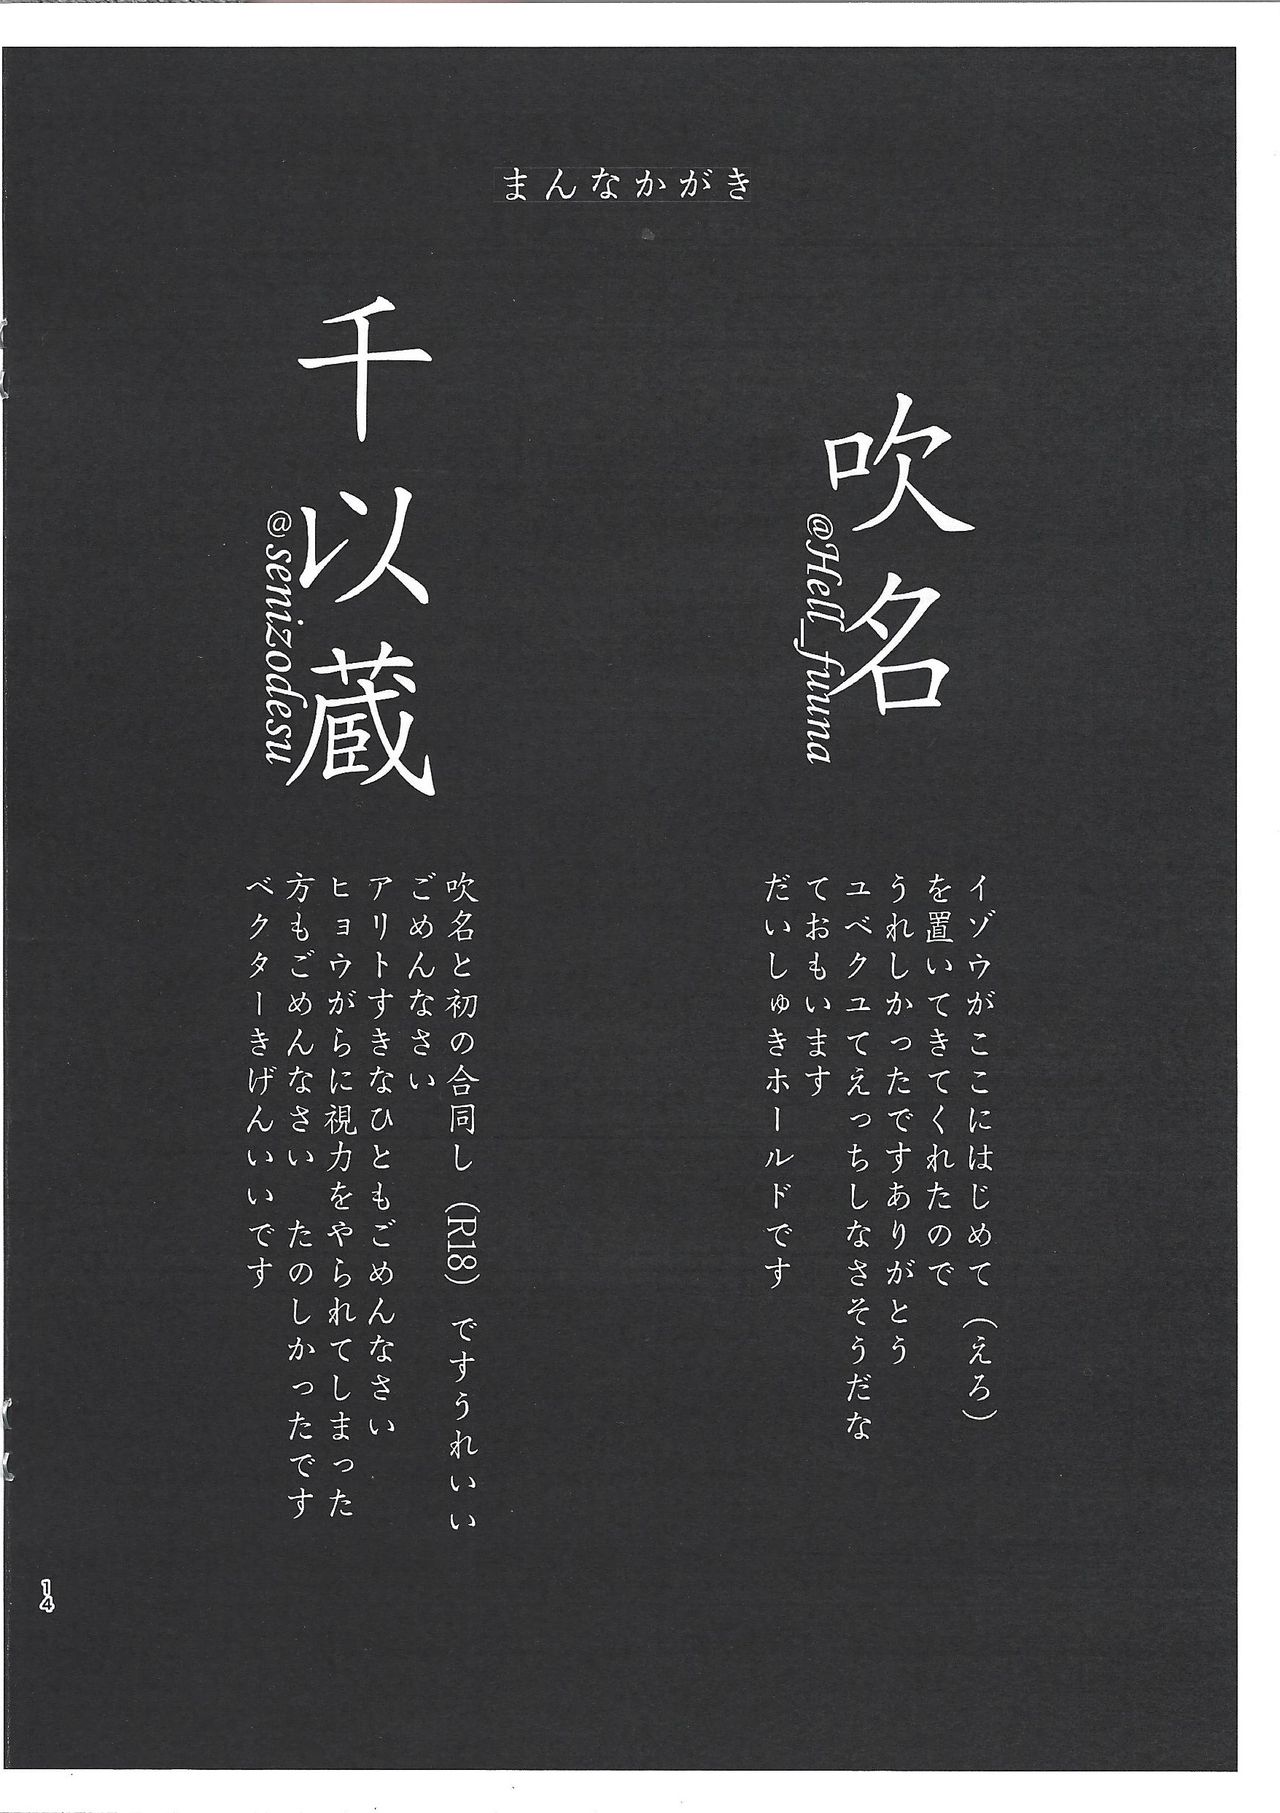 まんなかがき
吹名
@Hell_fuuna
イゾウがここにはじめて(えろ)
を置いてきてくれたので
うれしかったですありがとう
ユベクユてえっちしなさそうだな
ておもいます
だいしゅきホールドです
千以蔵
@senizodesu
吹名と初の合同し(R18)ですうれいいい
ごめんなさい
アリトすきなひともごめんなさい
ヒョウがらに視力をやられてしまった
方もごめんなさい たのしかったです
ベクターきげんいいです
14